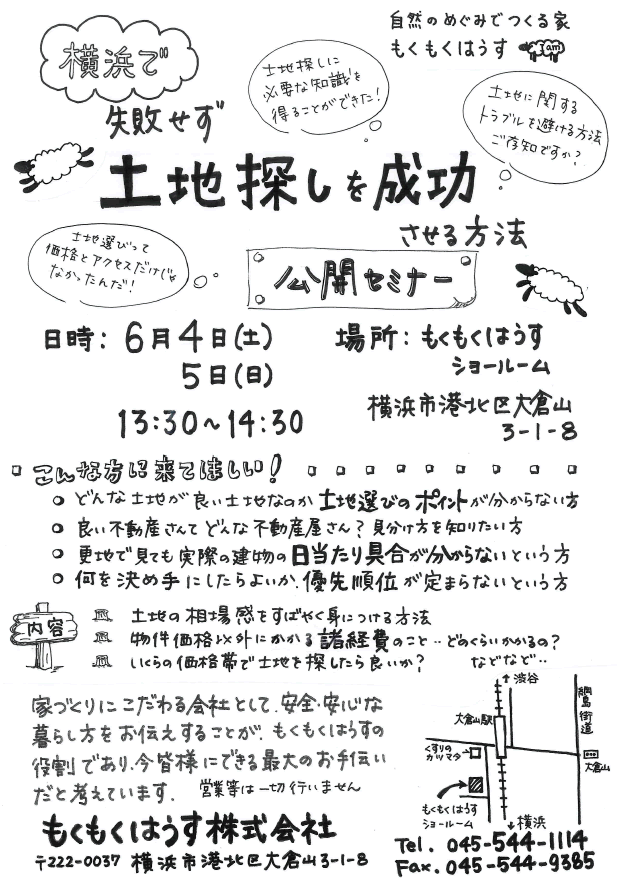 自然のめぐみでつくる家
もくもくはうす
I am
横浜で
土地探しに
必要な知識を
得ることができた!
土地に関する
トラブルを避ける方法
ご存知ですか?
失敗せず
土地探しを成功
させる方法
土地選びって
価格とアクセスだけじゃ
なかったんだ!
公開セミナー
日時:6月4日(土)
5日(日)
13:30~14:30
場所:もくもくはうす
ショールーム
横浜市港北区大倉山
3-1-8
こんな方に来てほしい!
○ どんな土地が良い土地なのか土地選びのポイントが分からない方
○ 良い不動産さんてどんな不動産屋さん?見分け方を知りたい方
○ 更地で見ても実際の建物の日当たり具合が分からないという方
○ 何を決め手にしたらよいか、優先順位が定まらないという方
内容
土地の相場感をすばやく身につける方法
物件価格以外にかかる諸経費のこと‥どのくらいかかるの?
いくらの価格帯で土地を探したら良いか? などなど‥
家づくりにこだわる会社として、安全・安心な
暮らし方をお伝えすることが、もくもくはうすの
役割であり、今皆様にできる最大のお手伝い
だと考えています。 営業等は一切行いません
もくもくはうす株式会社
〒222-0037 横浜市港北区大倉山3-1-8
渋谷
綱島街道
大倉山駅
くすりの
カツマタ
大倉山
もくもくはうす
ショールーム
横浜
Tel. 045-544-1114
Fax. 045-544-9385